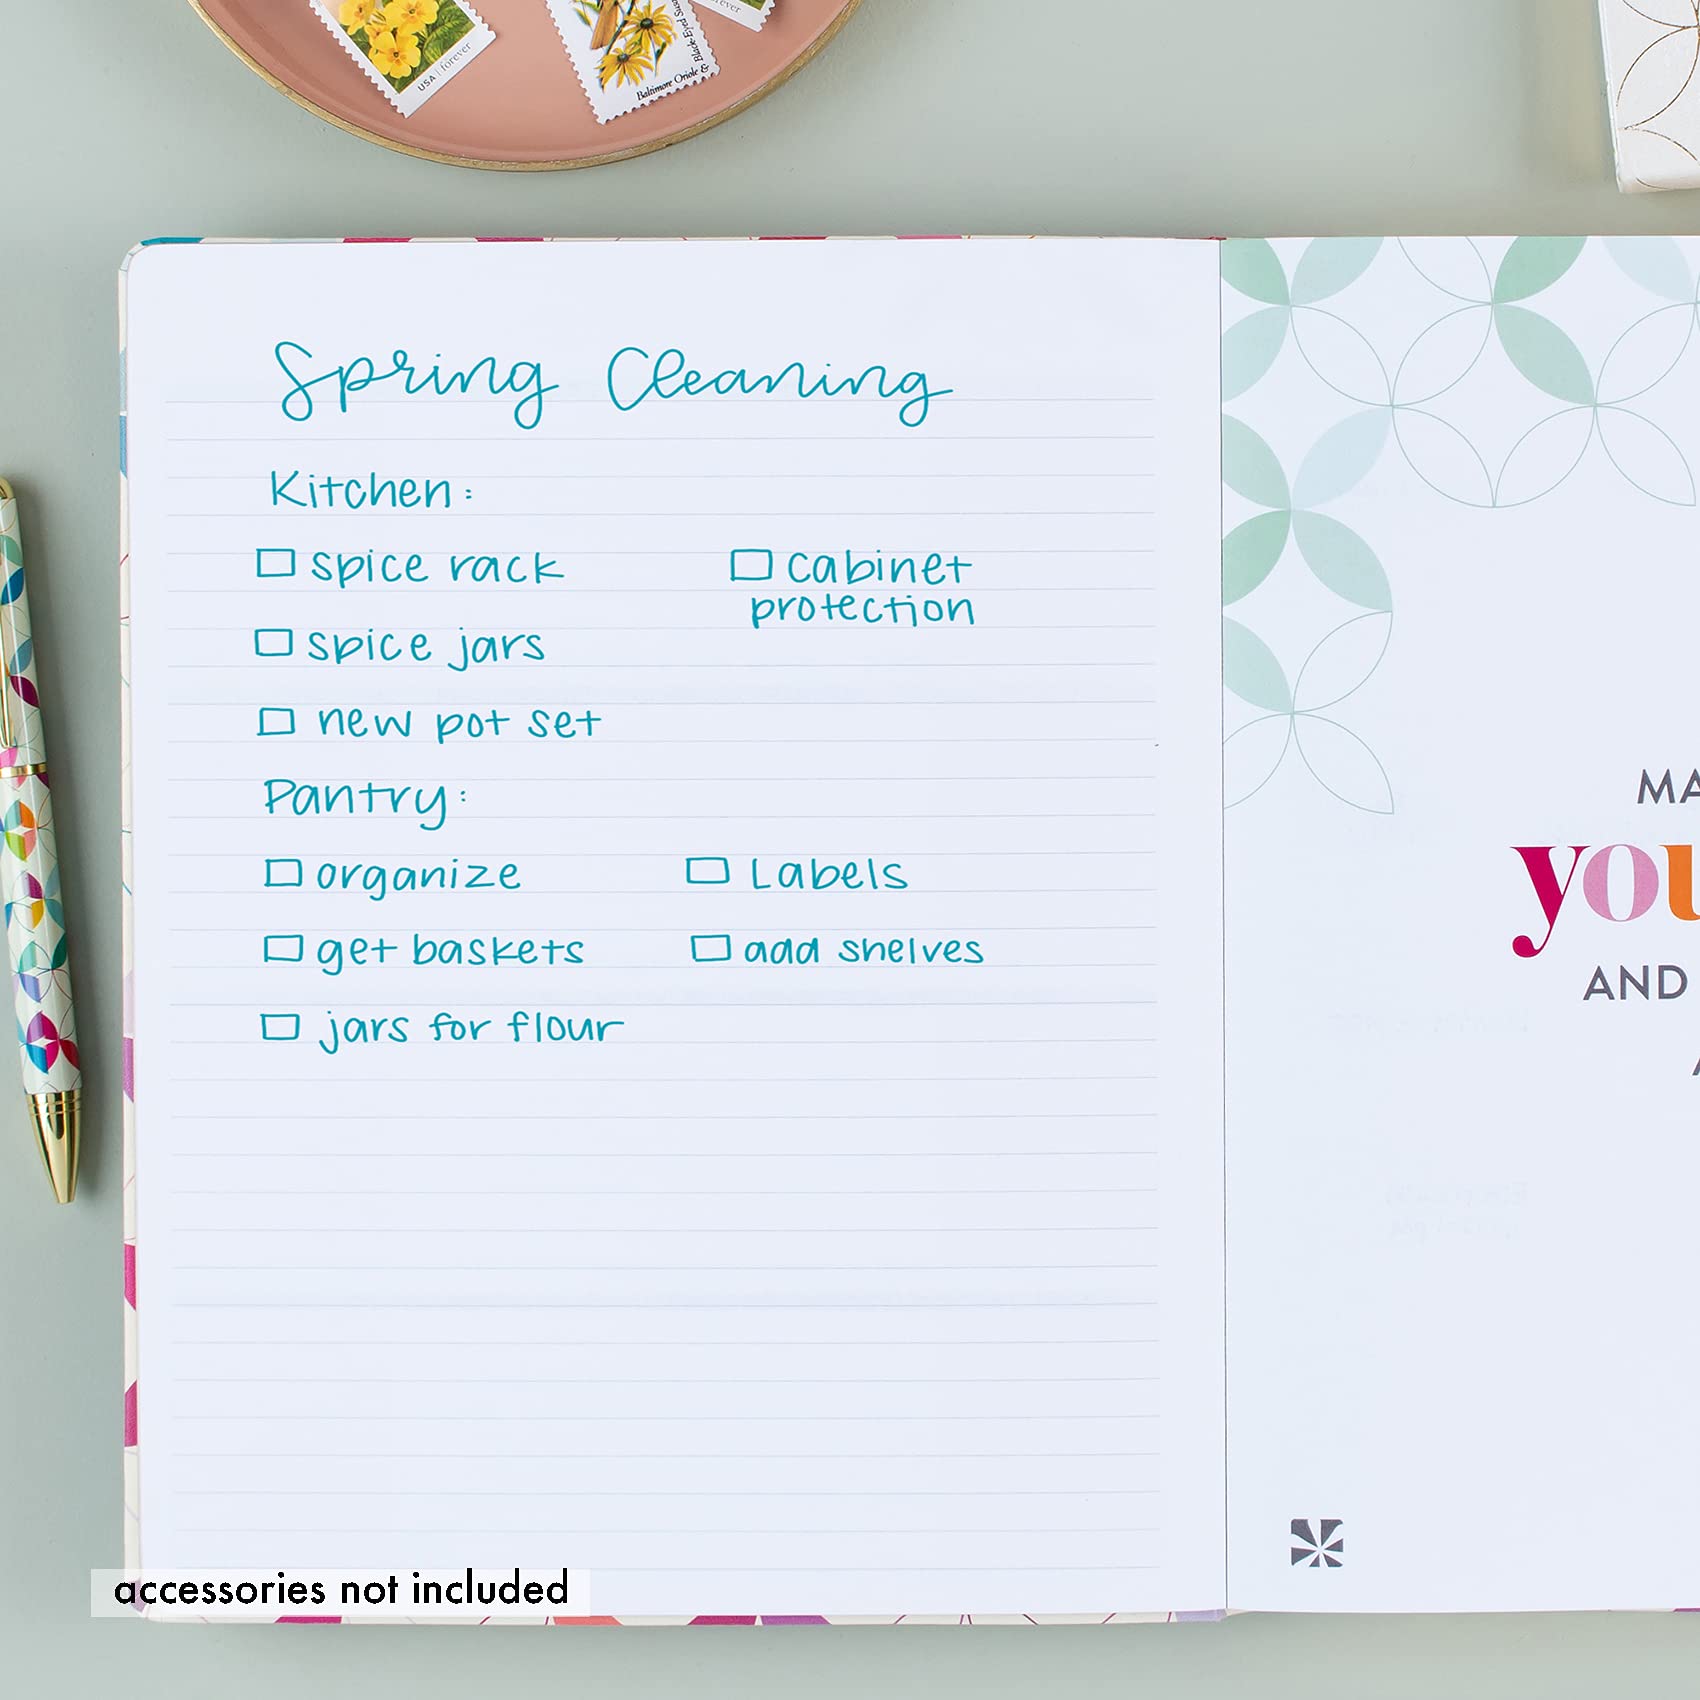 USA | forever
Baltimore Oriole &
Black-Eyed Sus
forever
Spring Cleaning
Kitchen:
☐ spice rack ☐ cabinet
protection
☐ spice jars
☐ new pot set
Pantry:
☐ organize ☐ Labels
☐ get baskets ☐ add shelves
☐ jars for flour
MA
you
AND
accessories not included